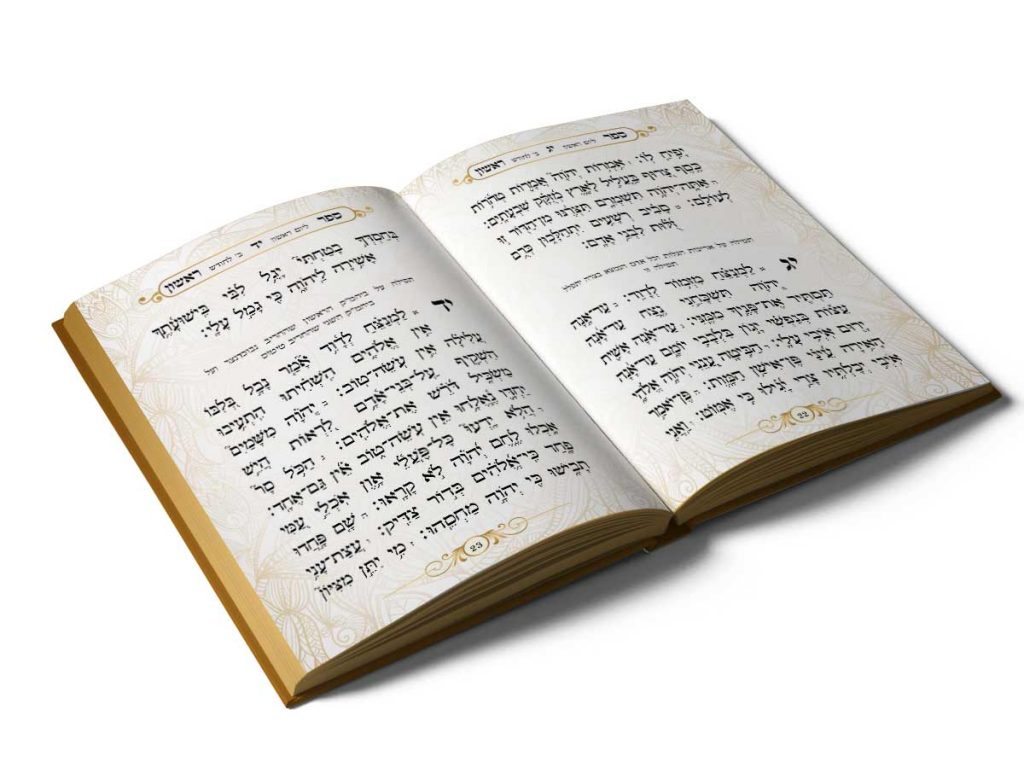 ספר ליום ראשון יג ב׳ לחודש ראשון
יָפִיחַ לוֹ: אִמְרוֹת יְהֹוָה אֲמָרוֹת טְהֹרוֹת
כֶּסֶף צָרוּף בַּעֲלִיל לָאָרֶץ מְזֻקָּק שִׁבְעָתָיִם:
אַתָּה־יְהֹוָה תִּשְׁמְרֵם תִּצְּרֶנּוּ מִן־הַדּוֹר זוּ
לְעוֹלָם: סָבִיב רְשָׁעִים יִתְהַלָּכוּן כְּרֻם
זֻלּוּת לִבְנֵי אָדָם:
תפילה על אריכות הגלות וכל אדם הנמצא בצרה יתפלל
תפילה זו
יג לַמְנַצֵּחַ מִזְמוֹר לְדָוִד: עַד־אָנָה
יְהֹוָה תִּשְׁכָּחֵנִי נֶצַח עַד־אָנָה
תַּסְתִּיר אֶת־פָּנֶיךָ מִמֶּנִּי: עַד־אָנָה אָשִׁית
עֵצוֹת בְּנַפְשִׁי יָגוֹן בִּלְבָבִי יוֹמָם עַד־אָנָה
יָרוּם אֹיְבִי עָלָי: הַבִּיטָה עֲנֵנִי יְהֹוָה אֱלֹהָי
הָאִירָה עֵינַי פֶּן־אִישַׁן הַמָּוֶת: פֶּן־יֹאמַר
אֹיְבִי יְכָלְתִּיו צָרַי יָגִילוּ כִּי אֶמּוֹט: וַאֲנִי
22
ספר ליום ראשון יד ב׳ לחודש ראשון
בְּחַסְדְּךָ בָטַחְתִּי יָגֵל לִבִּי בִּישׁוּעָתֶךָ
אָשִׁירָה לַיהֹוָה כִּי גָמַל עָלָי:
תפילה על ביהמ״ק הראשון שהחריב נבוכדנצר ועל
ביהמ״ק השני שהחריב טיטוס
יד לַמְנַצֵּחַ לְדָוִד אָמַר נָבָל בְּלִבּוֹ
אֵין אֱלֹהִים הִשְׁחִיתוּ הִתְעִיבוּ
עֲלִילָה אֵין עֹשֵׂה־טוֹב: יְהֹוָה מִשָּׁמַיִם
הִשְׁקִיף עַל־בְּנֵי־אָדָם לִרְאוֹת הֲיֵשׁ
מַשְׂכִּיל דֹּרֵשׁ אֶת־אֱלֹהִים: הַכֹּל סָר
יַחְדָּו נֶאֱלָחוּ אֵין עֹשֵׂה־טוֹב אֵין גַּם־אֶחָד:
הֲלֹא יָדְעוּ כָּל־פֹּעֲלֵי אָוֶן אֹכְלֵי עַמִּי
אָכְלוּ לֶחֶם יְהֹוָה לֹא קָרָאוּ: שָׁם פָּחֲדוּ
פָחַד כִּי־אֱלֹהִים בְּדוֹר צַדִּיק: עֲצַת־עָנִי
תָבִישׁוּ כִּי יְהֹוָה מַחְסֵהוּ: מִי יִתֵּן מִצִּיּוֹן
23